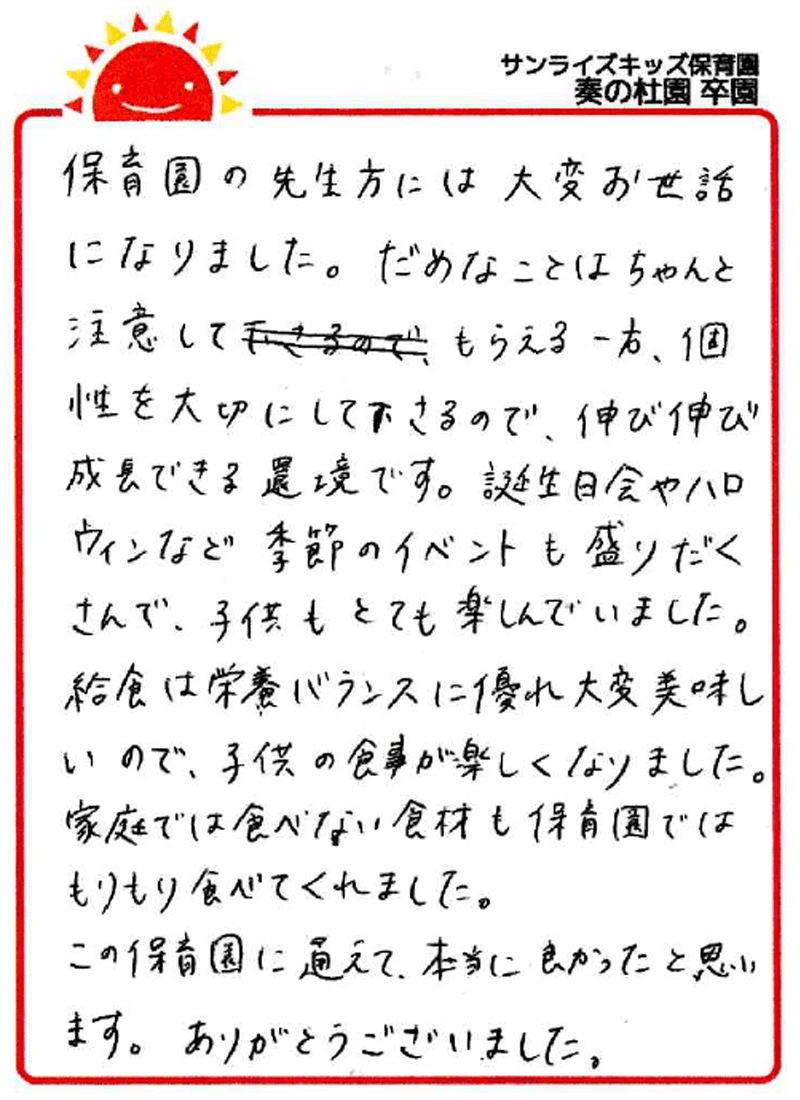 サンライズキッズ保育園
奏の杜園 卒園
保育園の先生方には大変お世話
になりました。だめなことはちゃんと
注意して下さるので、もらえる一方、個
性を大切にして下さるので、伸び伸び
成長できる環境です。誕生日会やハロ
ウィンなど季節のイベントも盛りだく
さんで、子供もとても楽しんでいました。
給食は栄養バランスに優れ大変美味し
いので、子供の食事が楽しくなりました。
家庭では食べない食材も保育園では
もりもり食べてくれました。
この保育園に通えて、本当に良かったと思い
ます。ありがとうございました。